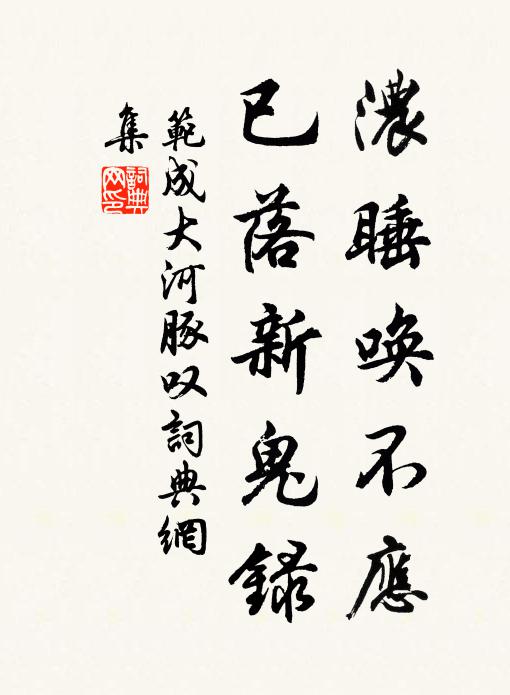 濃睡喚不應
已落新鬼錄
範成大河豚叹詞典網
集
詞典
网印